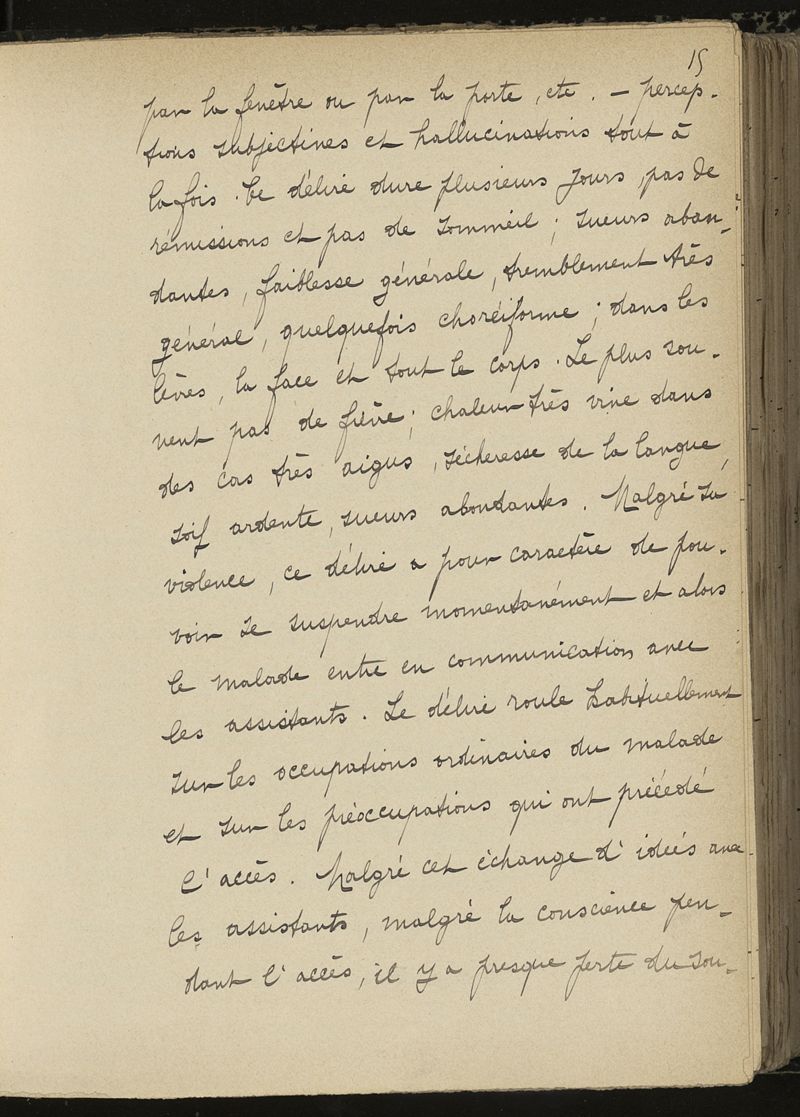 15
par la fenêtre ou par la porte, etc. — percep-
tions subjectives et hallucinations tout à
la fois. Ce délire dure plusieurs jours, pas de
rémissions et pas de sommeil ; sueurs abon-
dantes, faiblesse générale, tremblement très
général, quelquefois choréiforme ; dans les
lèvres, la face et tout le corps. Le plus sou-
vent pas de fièvre ; chaleur très vive dans
des cas très aigus, sécheresse de la langue,
soif ardente, sueurs abondantes. Malgré sa
violence, ce délire a pour caractère de pou-
voir se suspendre momentanément et alors
le malade entre en communication avec
les assistants. Le délire roule habituellement
sur les occupations ordinaires du malade
et sur les préoccupations qui ont précédé
l'accès. Malgré cet échange d'idées avec
les assistants, malgré la conscience pen-
dant l'accès, il y a presque perte du sou-